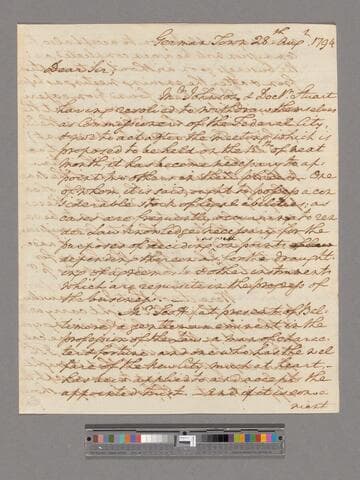 German Town 28th Augt. 1794
Dear Sir,
Mr. Johnson & Doctr. Stuart
having resolved to withdraw themselves
as Commissioners of the Federal City,
& not to act after the meeting which is
proposed to be held on the 15th of next
month it has become necessary to ap
point two others in their places. One
of whom it is said, ought to possess a con
siderable stock of legal abilities; as
cases are frequently occurring to ren
der Law knowledge necessary for the
purposes of deciding on points
depending thereon as well
as for the draught
ing of agreements & other instruments
which are requisite in the progress of
the business.
Mr. Scott, at present of Bal
timore, a gentleman eminent in the
profession of the Law; a man of charac
ter & fortune and one who has the wel
fare of the new City much at heart
has been applied to and accepts the
appointed trust. and of it is conve
nient